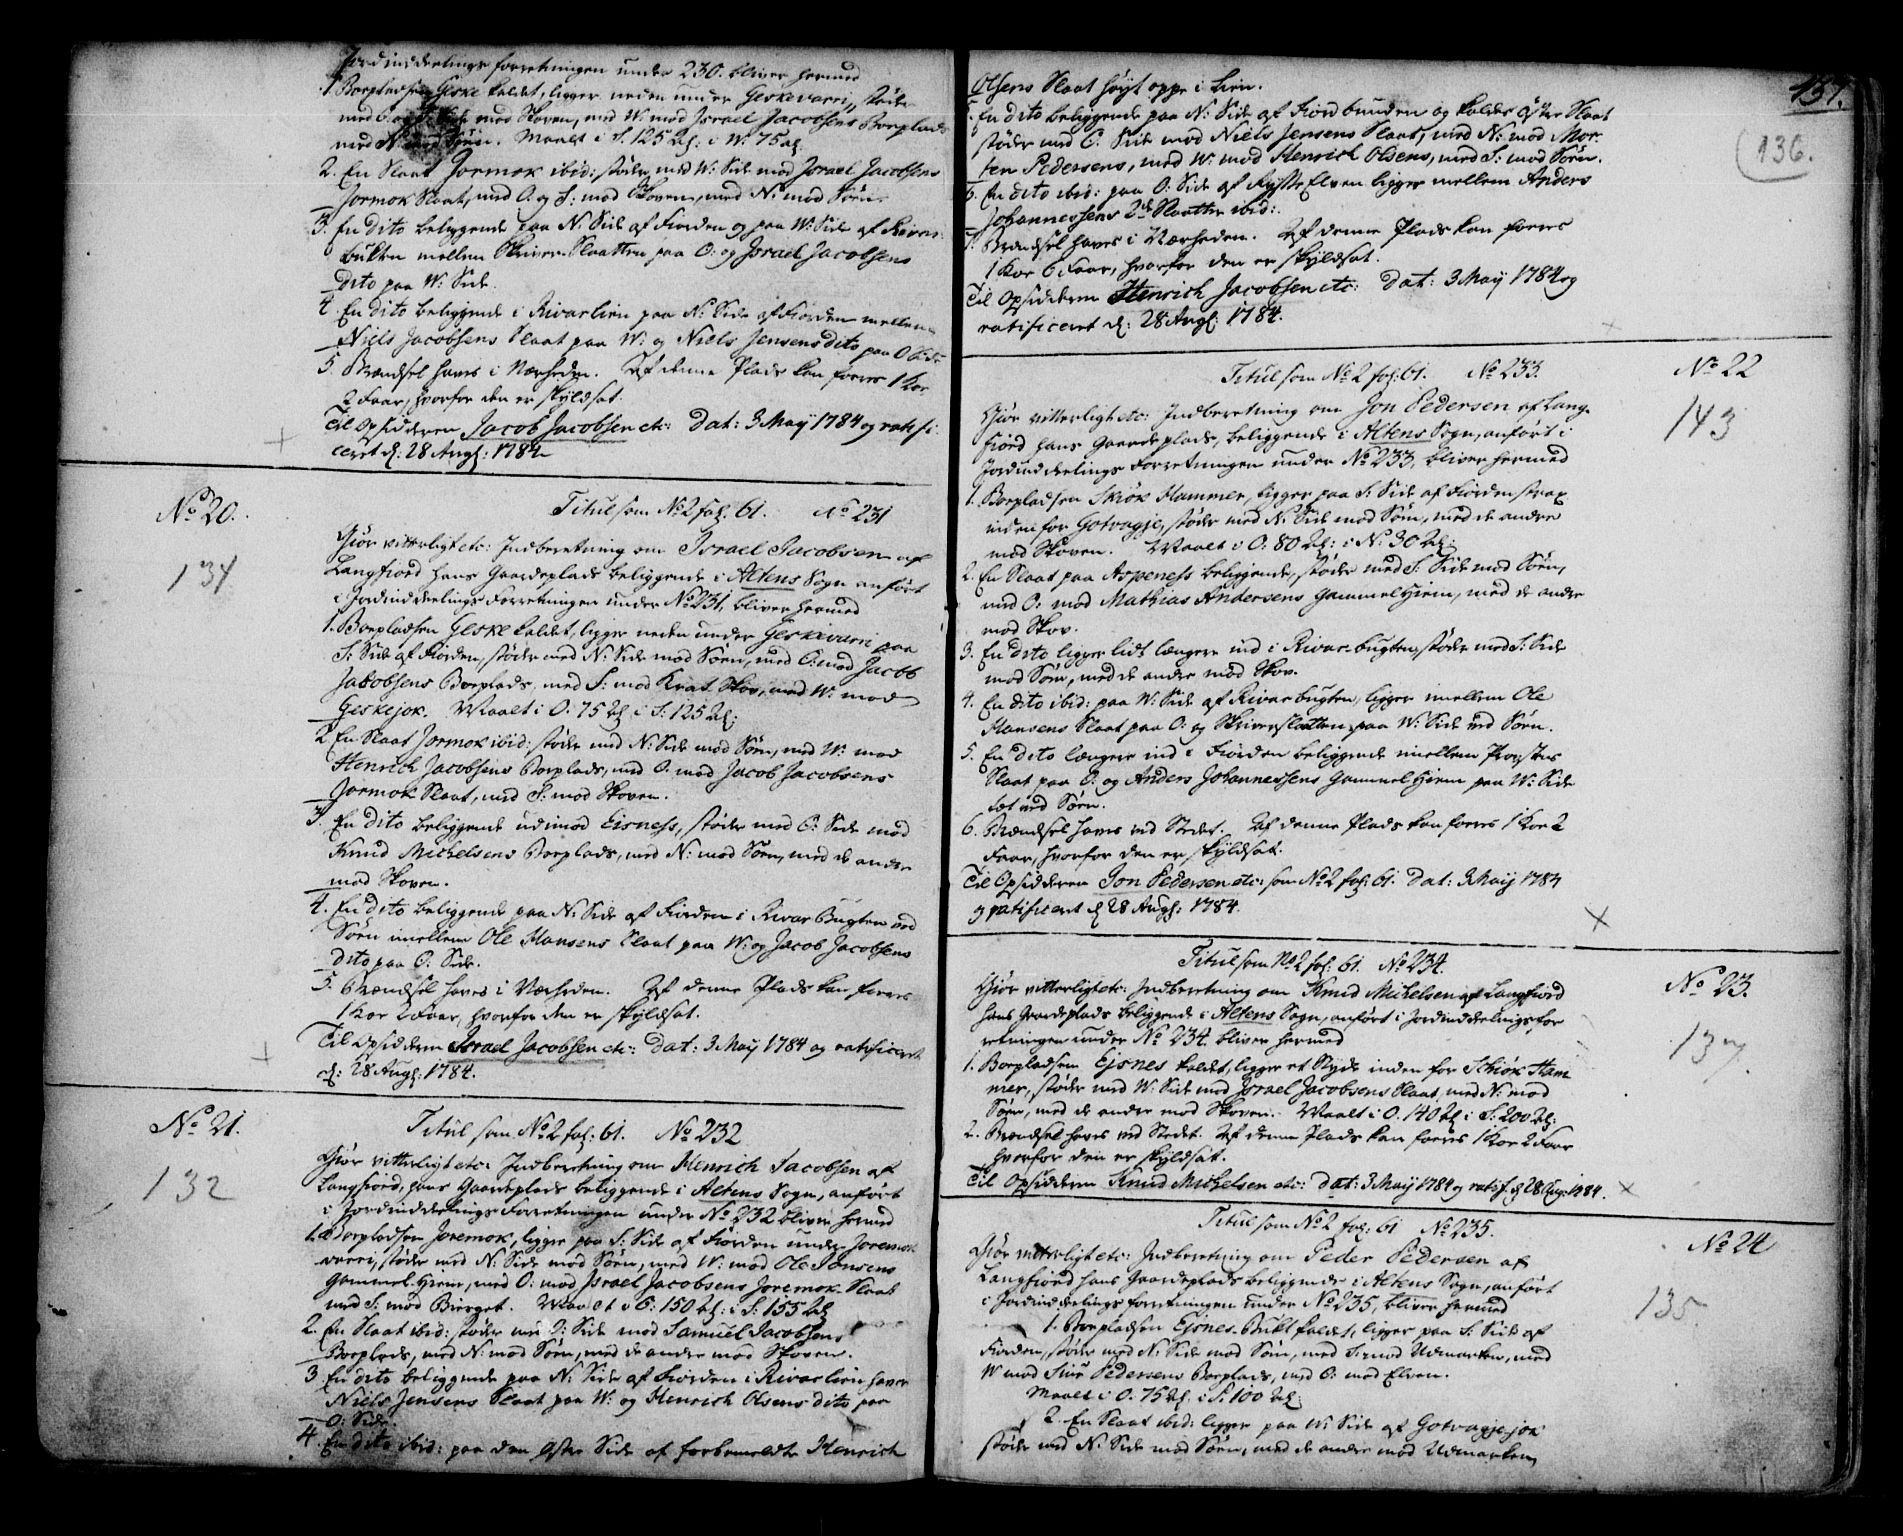 Jordinddeelings forretningen under 230. bliver hermed
1. Boepladsen Geske kaldet, ligger neden under Geskevarri, støder
med O. og S. Side mod Skoven, med W: mod Israel Jacobsens Boeplads
med N: mod Søen. Maalt i S. 125 Al: i W. 75 al.
2. En Slaat Jormok ibid: støder med W: Side mod Israel Jacobsens
Jormok Slaat, med O. og S: mod Skoven, med N: mod Søen.
3. En dito beliggende paa N: Side af Fiorden og paa W: Side af Rivar-
bukten mellem Skriver Slaatten paa O: og Israel Jacobsens
dito paa W: Side.
4. En dito beliggende i Rivarlien paa N: Side af Fiorden mellem
Niels Jacobsens Slaat paa W: og Niels Jensens dito paa O Side
5. Brændsel haves i Nærheden. Af denne Plads kan føres 1 Koe
2 Faar, hvorfor den er skyldsat.
Til Opsidderen Jacob Jacobsen etc: Dat: 3 Maij 1784 og ratifi-
ceret d: 28 Aug: 1784
No 20.
134
Titul som No 2 fol: 61. No 231
Giør vitterligt etc: Indberetning om Israel Jacobsen af
Langfiord hans Gaardeplads beliggende i Altens Sogn anført
i Jordinddeelings Forretningen under No 231, bliver hermed
1. Boepladsen Geske kaldet, ligger neden under Geskivarri paa
S: Side af Fiorden, støder med N: Side mod Søen, med O: mod Jacob
Jacobsens Boeplads, med S: mod Krat Skov, med W: mod
Geskejok. Maalt i O: 75 Al i S: 125 Al:
2 En Slaat Jormok ibid: støder med N: Side mod Søen, med W: mod
Henrich Jacobsens Boeplads, med O. mod Jacob Jacobsens
Jormok Slaat, med S: mod Skoven.
3. En dito beliggende udimod Eisness, støder med O: Side mod
Knud Michelsens Boeplads, med N: mod Søen, med de andre
mod Skoven.
4. En dito beliggende paa N: Side af Fiorden i Rivar Bugten ved
Søen imellem Ole Hansens Slaat paa W: og Jacob Jacobsens
dito paa O: Side.
5. Brændsel haves i Nærheden. Af denne Plads kan føres
1 Koe 2 Faar, hvorfor den er skyldsat.
Til Opsidderen Israel Jacobsen etc: Dat: 3 Maij 1784 og ratificeret
d: 28 Aug: 1784.
No 21.
132
Titul som No 2 fol: 61. No 232
Giør vitterligt etc: Indberetning om Henrich Jacobsen af
Langfiord, hans Gaardeplads beliggende i Altens Sogn, anført
i Jordinddelings Forretningen under No 232 bliver hermed
1. Boepladsen Joremok, ligger paa S: Side af Fiorden under Joremok
varri, støder med N: Side mod Søen, med W: mod Ole Jonsens
Gammel Hiem, med O: mod Israel Jacobsens Joremok Slaat
med S: mod Bierget. Maalt i O: 150 Al: i S: 155 Al
2. En Slaat ibid: støder med O: Side mod Samuel Jacobsens
Boeplads, med N: mod Søen, med de andre mod Skoven.
3. En dito beliggende paa N: Side af Fiorden i Rivarlien haver
Niels Jensens Slaat paa W: og Henrich Olsens dito paa
O: Side.
4. En dito ibid: paa den Østre Side af forbemeldte Henrich
137.
136.
Olsens Slaat høyt oppe i Lien.
5. En dito beliggende paa N: Side af Fiord bunden og kaldes Østre Slaat
støder med O. Side mod Niels Jensens Slaat, med N: mod Mor-
ten Pedersens, med W: mod Henrich Olsens, med S: mod Søen.
6. En dito ibid: paa O: Side af Elven ligger mellem Anders
Johannessens 2de Slaatter ibid:.
7. Brændsel haves i Nærheden. Af denne Plads kan føres
1 Koe 6 Faar, hvorfor den er skyldsat.
Til Opsidderen Henrich Jacobsen etc: Dat: 3 Maij 1784 og
ratificeret d: 28 Aug: 1784.
No 22
143
Titul som No 2 fol: 61. No 233.
Giør vitterligt etc: Indberetning om Jon Pedersen af Lang-
fiord hans Gaardeplads, beliggende i Altens Sogn, anført i
Jordinddeelings Forretningen under No 233, bliver hermed
1. Boepladsen Skiøk Hammer, ligger paa S: Side af Fiorden strax
inden for Gotvagje, støder med N: Side mod Søen, med de andre
mod Skoven. Maalt i O: 80 Al: i N: 30 Al:
2. En Slaat paa Aspeness beliggende, støder med S: Side mod Søen,
med O: mod Mathias Andersens Gammel Hiem, med de andre
mod Skov.
3. En dito ligger lidt længere ind i Rivar-bugten støder med S: Side
mod Søen, med de andre mod Skov.
4. En dito ibid: paa W: Side af Rivar bugten, ligger mellem Ole
Hansens Slaat paa O: og Skriverslaatten paa W: Side ved Søen.
5. En dito længere ind i Fiorden beliggende mellem Provstens
Slaat paa O: og Anders Johannessens Gammel Hiem paa W: Side
tæt ved Søen.
6. Brændsel haves ved Stedet. Af denne Plads kan føres 1 Koe 2
Faar, hvorfor den er skyldsat.
Til Opsidderen Jon Pedersen etc: som No 2 fol: 61. Dat: 3 Maij 1784
og ratificeret d 28 Aug: 1784.
No 23.
137.
Titul som No 2 fol: 61. No 234.
Giør vitterligt etc: Indberetning om Knud Michelsen af Langfiord
hans Gaardeplads beliggende i Altens Sogn, anført i Jordinddelings for
retningen under No 234. bliver hermed
1. Boepladsen Ejsnes kaldet, ligger et Stykke inden for Skiøk Ham
mer, støder med W: Side mod Israel Jacobsens Slaat, med N: mod
Søen, med de andre mod Skoven. Maalt i O. 140 Al i S: 200 Al:
2. Brændsel haves ved Stedet. Af denne Plads kan føres 1 Koe 2 Faar
hvorfor den er skyldsat.
Til Opsidderen Knud Michelsen etc: dat: 3 Maij 1784 og ratif. d 28 Aug: 1784.
No 24
135.
Titul som No 2 fol: 61 No 235.
Giør vitterligt etc: Indberetning om Peder Pedersen af
Langfiord hans Gaardeplads beliggende i Altens Sogn, anført
i Jordinddeelings forretningen under No 235, bliver hermed
1. Boepladsen Ejsnes-Bukt kaldet, ligger paa S: Side af
Fiorden, støder med N: Side mod Søen, med S: mod Udmarken, med
W mod Siur Pedersens Boeplads, med O: mod Elven.
Maalt i O. 75 Al. i S. 100 Al:
2. En Slaat ibid: ligger paa W: Side af Gotvagje-jok
støder med N: Side mod Søen, med de andre mod Udmarken,